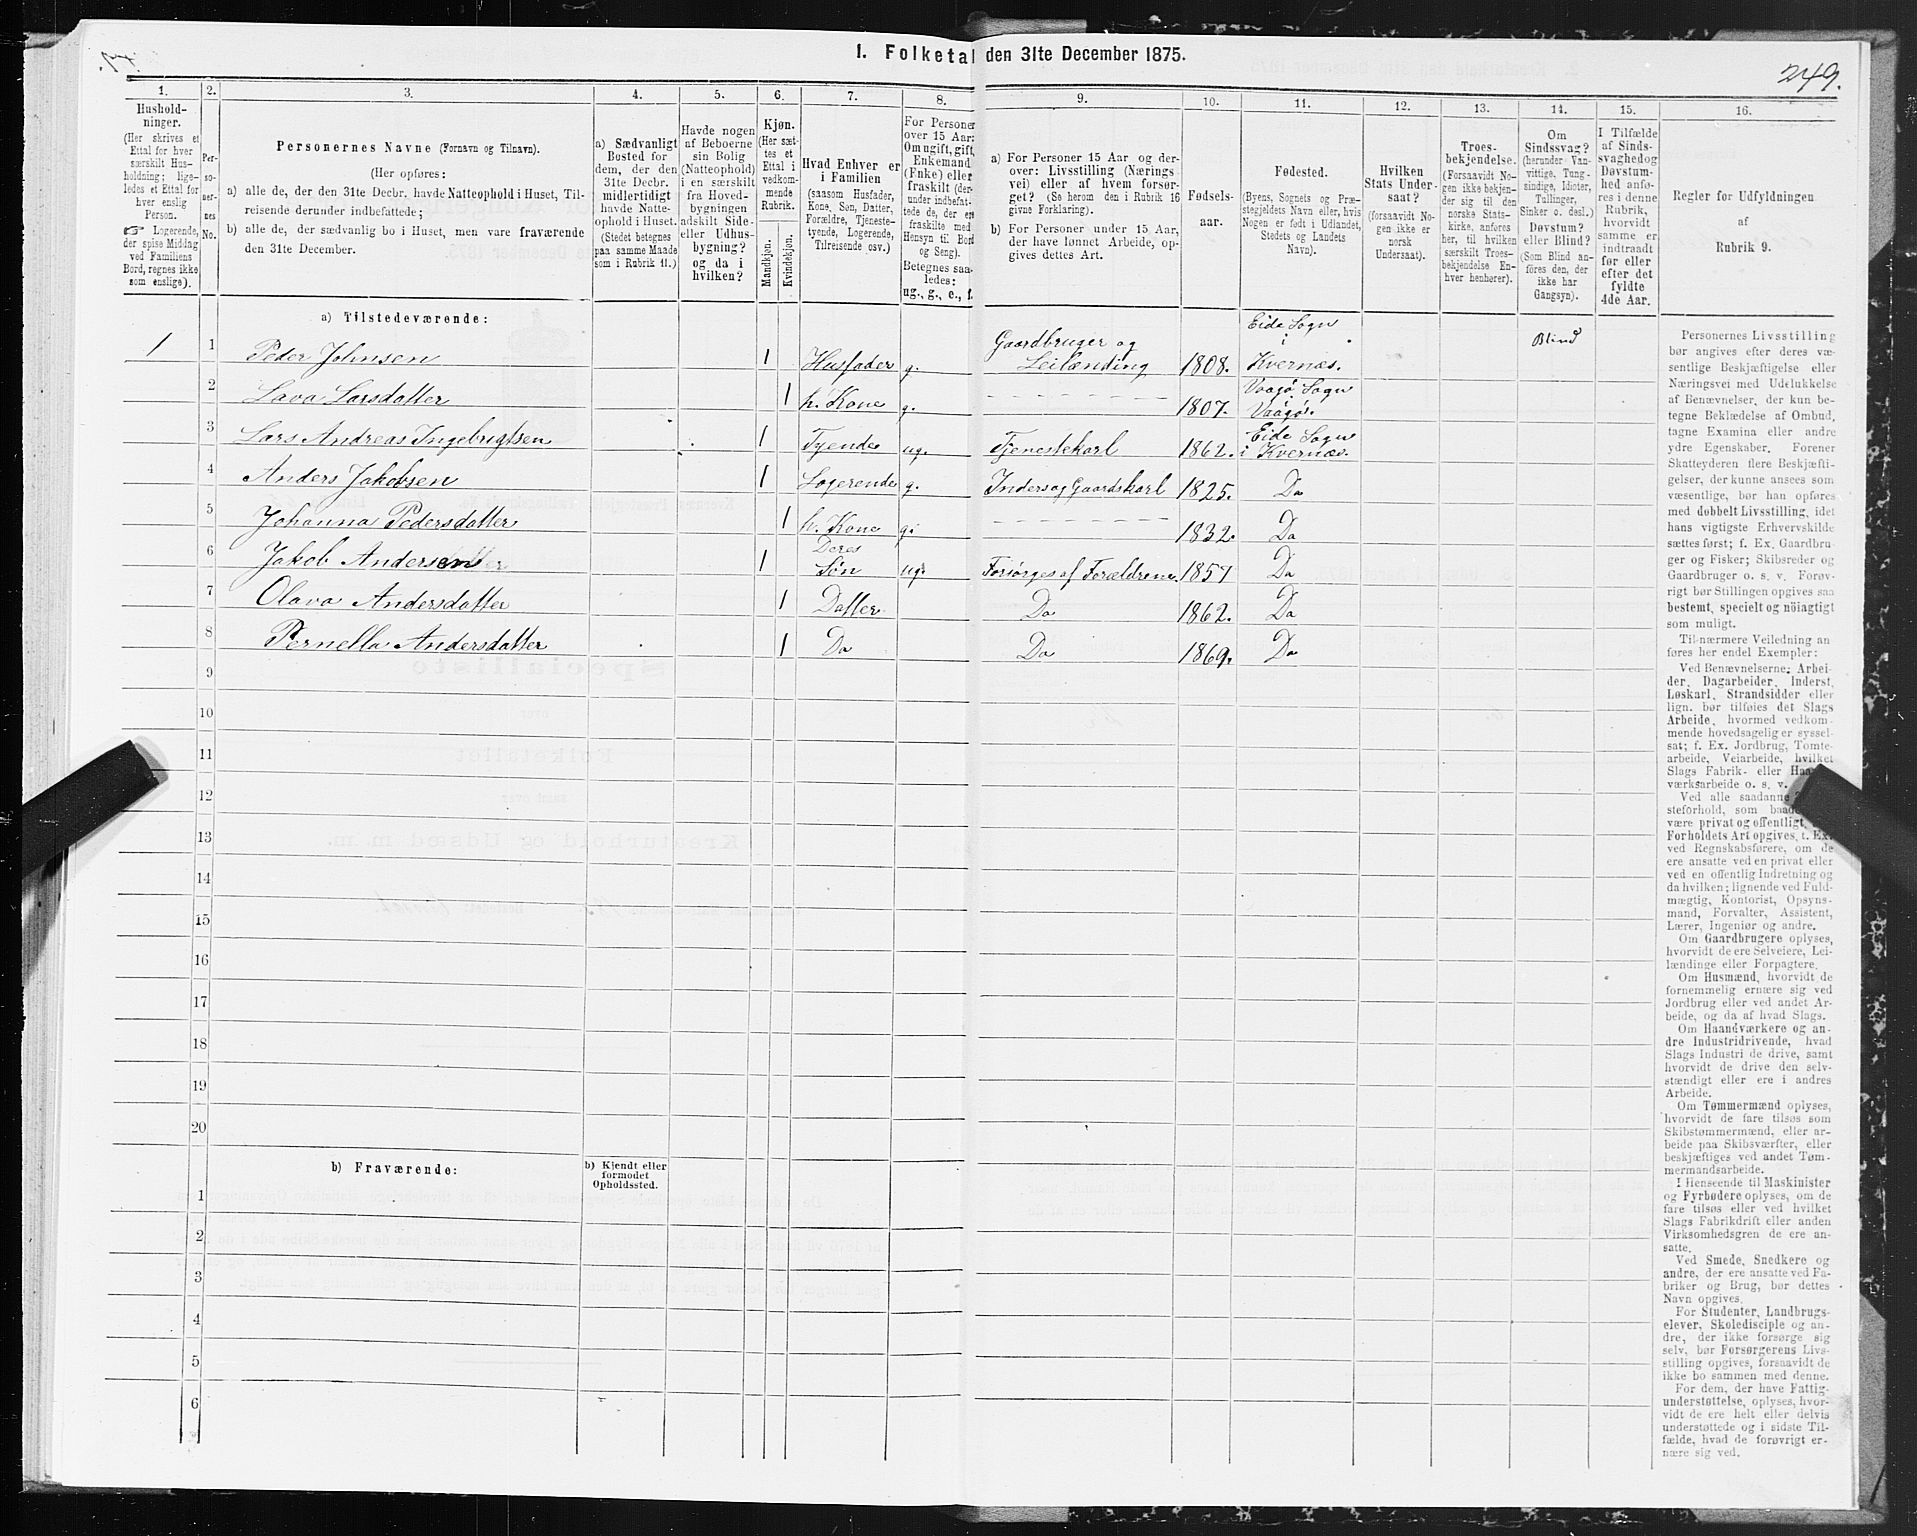 1. Folketal den 31te December 1875.
249.
1. 2. 3. 4. 5. 6. 7. 8. 9. 10. 11. 12. 13. 14. 15. 16.
Hushold-
ninger.
(Her skrives et
Ettal for hver
særskilt Hus-
holdning; lige-
ledes et Ettal for
hver enslig
Person.
☞ Logerende,
der spise Middag
ved Familiens
Bord, regnes ikke
som enslige).
Per-
so-
ner-
nes
No.
Personernes Navne (Fornavn og Tilnavn).
(Her opføres:
a) alle de, der den 31te Decbr. havde Natteophold i Huset, Til-
reisende derunder indbefattede;
b) alle de, der sædvanlig bo i Huset, men vare fraværende
den 31te December.
a) Sædvanligt
Bosted for
dem, der den
31te Decbr.
midlertidigt
havde Natte-
ophold i Huset.
(Stedet betegnes
paa samme Maade
som i Rubrik 11.)
Havde nogen
af Beboerne
sin Bolig
(Natteophold)
i en særskilt
fra Hoved-
bygningen
adskilt Side-
eller Udhus-
bygning?
og da i
hvilken?
Kjøn.
(Her sæt-
tes et
Ettal i
vedkom-
mende
Rubrik.
Mandkjøn.
Kvindekjøn.
Hvad Enhver er
i Familien
(saasom Husfader,
Kone, Søn, Datter,
Forældre, Tjeneste-
tyende, Logerende,
Tilreisende osv.)
For Personer
over 15 Aar:
Om ugift, gift,
Enkemand
(Enke) eller
fraskilt (der-
under indbefat-
tede de, der ere
fraskilte med
Hensyn til Bord
og Seng).
Betegnes saa-
ledes:
ug., g., e., f.
a) For Personer 15 Aar og der-
over: Livsstilling (Nærings-
vei) eller af hvem forsør-
get? (Se herom den i Rubrik 16
givne Forklaring).
b) For Personer under 15 Aar,
der have lønnet Arbeide, op-
gives dettes Art.
Fødsels-
aar.
Fødested.
(Byens, Sognets og Præ-
stegjeldets Navn eller, hvis
Nogen er født i Udlandet,
Stedets og Landets
Navn).
Hvilken
Stats Under-
saat?
(forsaavidt No-
gen ikke er
norsk
Undersaat).
Troes-
bekjendelse.
(Forsaavidt No-
gen ikke bekjen-
der sig til den
norske Stats-
kirke, anføres
her, til hvilken
særskilt Troes-
bekjendelse En-
hver henhører).
Om
Sindssvag?
(herunder Van-
vittige, Tung-
sindige, Idioter,
Tullinger,
Sinker o. desl.)
Døvstum?
eller Blind?
(Som Blind an-
føres den, der
ikke har
Gangsyn).
I Tilfælde
af Sinds-
svaghed og
Døvstum-
hed anfø-
res i denne
Rubrik,
hvorvidt
samme er
indtraadt
før eller
efter det
fyldte
4de Aar.
Regler for Udfyldningen
af
Rubrik 9.
a) Tilstedeværende:
1 1 Peder Johnsen 1 Husfader g. Gaardbruger og Leilænding 1808. Eide Sogn i Kvernæs. Blind
2 Lava Larsdatter 1 h. Kone g. 1807. Vaagø Sogn Vaagø.
3 Lars Andreas Ingebrigtsen 1 Tyende ug. Tjenestekarl 1862. Eide Sogn i Kvernæs.
4 Anders Jakobsen 1 Logerende g. Inderst og Gaardskarl 1825. Do
5 Johanna Pedersdatter 1 h. Kone g. 1832. Do
6 Jakob Andersen 1 Deres Søn ug. Forsørges af Forældrene 1857 Do
7 Olava Andersdatter 1 Datter Do 1862. Do
8 Pernella Andersdatter 1 Do Do 1869. Do
9
10
11
12
13
14
15
16
17
18
19
20
b) Fraværende:
b) Kjendt eller
formodet
Opholdssted.
1
2
3
4
5
6
Personernes Livsstilling
bør angives efter deres væ-
sentlige Beskjæftigelse eller
Næringsvei med Udelukkelse
af Benævnelser, der kun be-
tegne Beklædelse af Ombud,
tagne Examina eller andre
ydre Egenskaber. Forener
Skatteyderen flere Beskjæfti-
gelser, der kunne ansees som
væsentlige, bør han opføres
med dobbelt Livsstilling, idet
hans vigtigste Erhvervskilde
sættes først; f. Ex. Gaardbru-
ger og Fisker; Skibsreder og
Gaardbruger o. s. v. Forøv-
rigt bør Stillingen opgives saa
bestemt, specielt og nöiagtigt
som muligt.
Til nærmere Veiledning an-
føres her endel Exempler:
Ved Benævnelserne: Arbei-
der, Dagarbeider, Inderst,
Løskarl, Strandsidder eller
lign. bør tilføies det Slags
Arbeide, hvormed vedkom-
mende hovedsagelig er syssel-
sat; f. Ex. Jordbrug, Tomte-
arbeide, Veiarbeide, hvilket
Slags Fabrik- eller
værksarbeide o. s. v.
Ved alle saadanne
steforhold, som
være privat og offentligt,
Forholdets Art opgives, t. Ex.
ved Regnskabsførere, om de
ere ansatte ved en privat eller
ved en offentlig Indretning og
da hvilken; lignende ved Fuld-
mægtig, Kontorist, Opsyns-
mand, Forvalter, Assistent,
Lærer, Ingeniør og andre.
Om Gaardbrugere oplyses,
hvorvidt de ere Selveiere, Lei-
lændinge eller Forpagtere.
Om Husmænd, hvorvidt de
fornemmelig ernære sig ved
Jordbrug eller ved andet Ar-
beide, og da af hvad Slags.
Om Haandværkere og an-
dre Industridrivende, hvad
Slags Industri de drive, samt
hvorvidt de drive den selv-
stændigt eller ere i andres
Arbeide.
Om Tømmermænd oplyses,
hvorvidt de fare tilsøs som
Skibstømmermænd, eller ar-
beide paa Skibsværfter, eller
beskjæftiges ved andet Tøm-
mermandsarbeide.
I Henseende til Maskinister
og Fyrbødere oplyses, om de
fare tilsøs eller ved hvilket
Slags Fabrikdrift eller anden
Virksomhedsgren de ere an-
satte.
Ved Smede, Snedkere og
andre, der ere ansatte ved Fa-
briker og Brug, bør dettes
Navn opgives.
For Studenter, Landbrugs-
elever, Skoledisciple og an-
dre, der ikke forsørge sig
selv, bør Forsørgerens Livs-
stilling opgives, forsaavidt de
ikke bo sammen med denne.
For dem, der have Fattig-
understøttelse, oplyses, hvor-
vidt de ere helt eller delvis
understøttede og i sidste Til-
fælde, hvad de forøvrigt er-
nære sig ved.